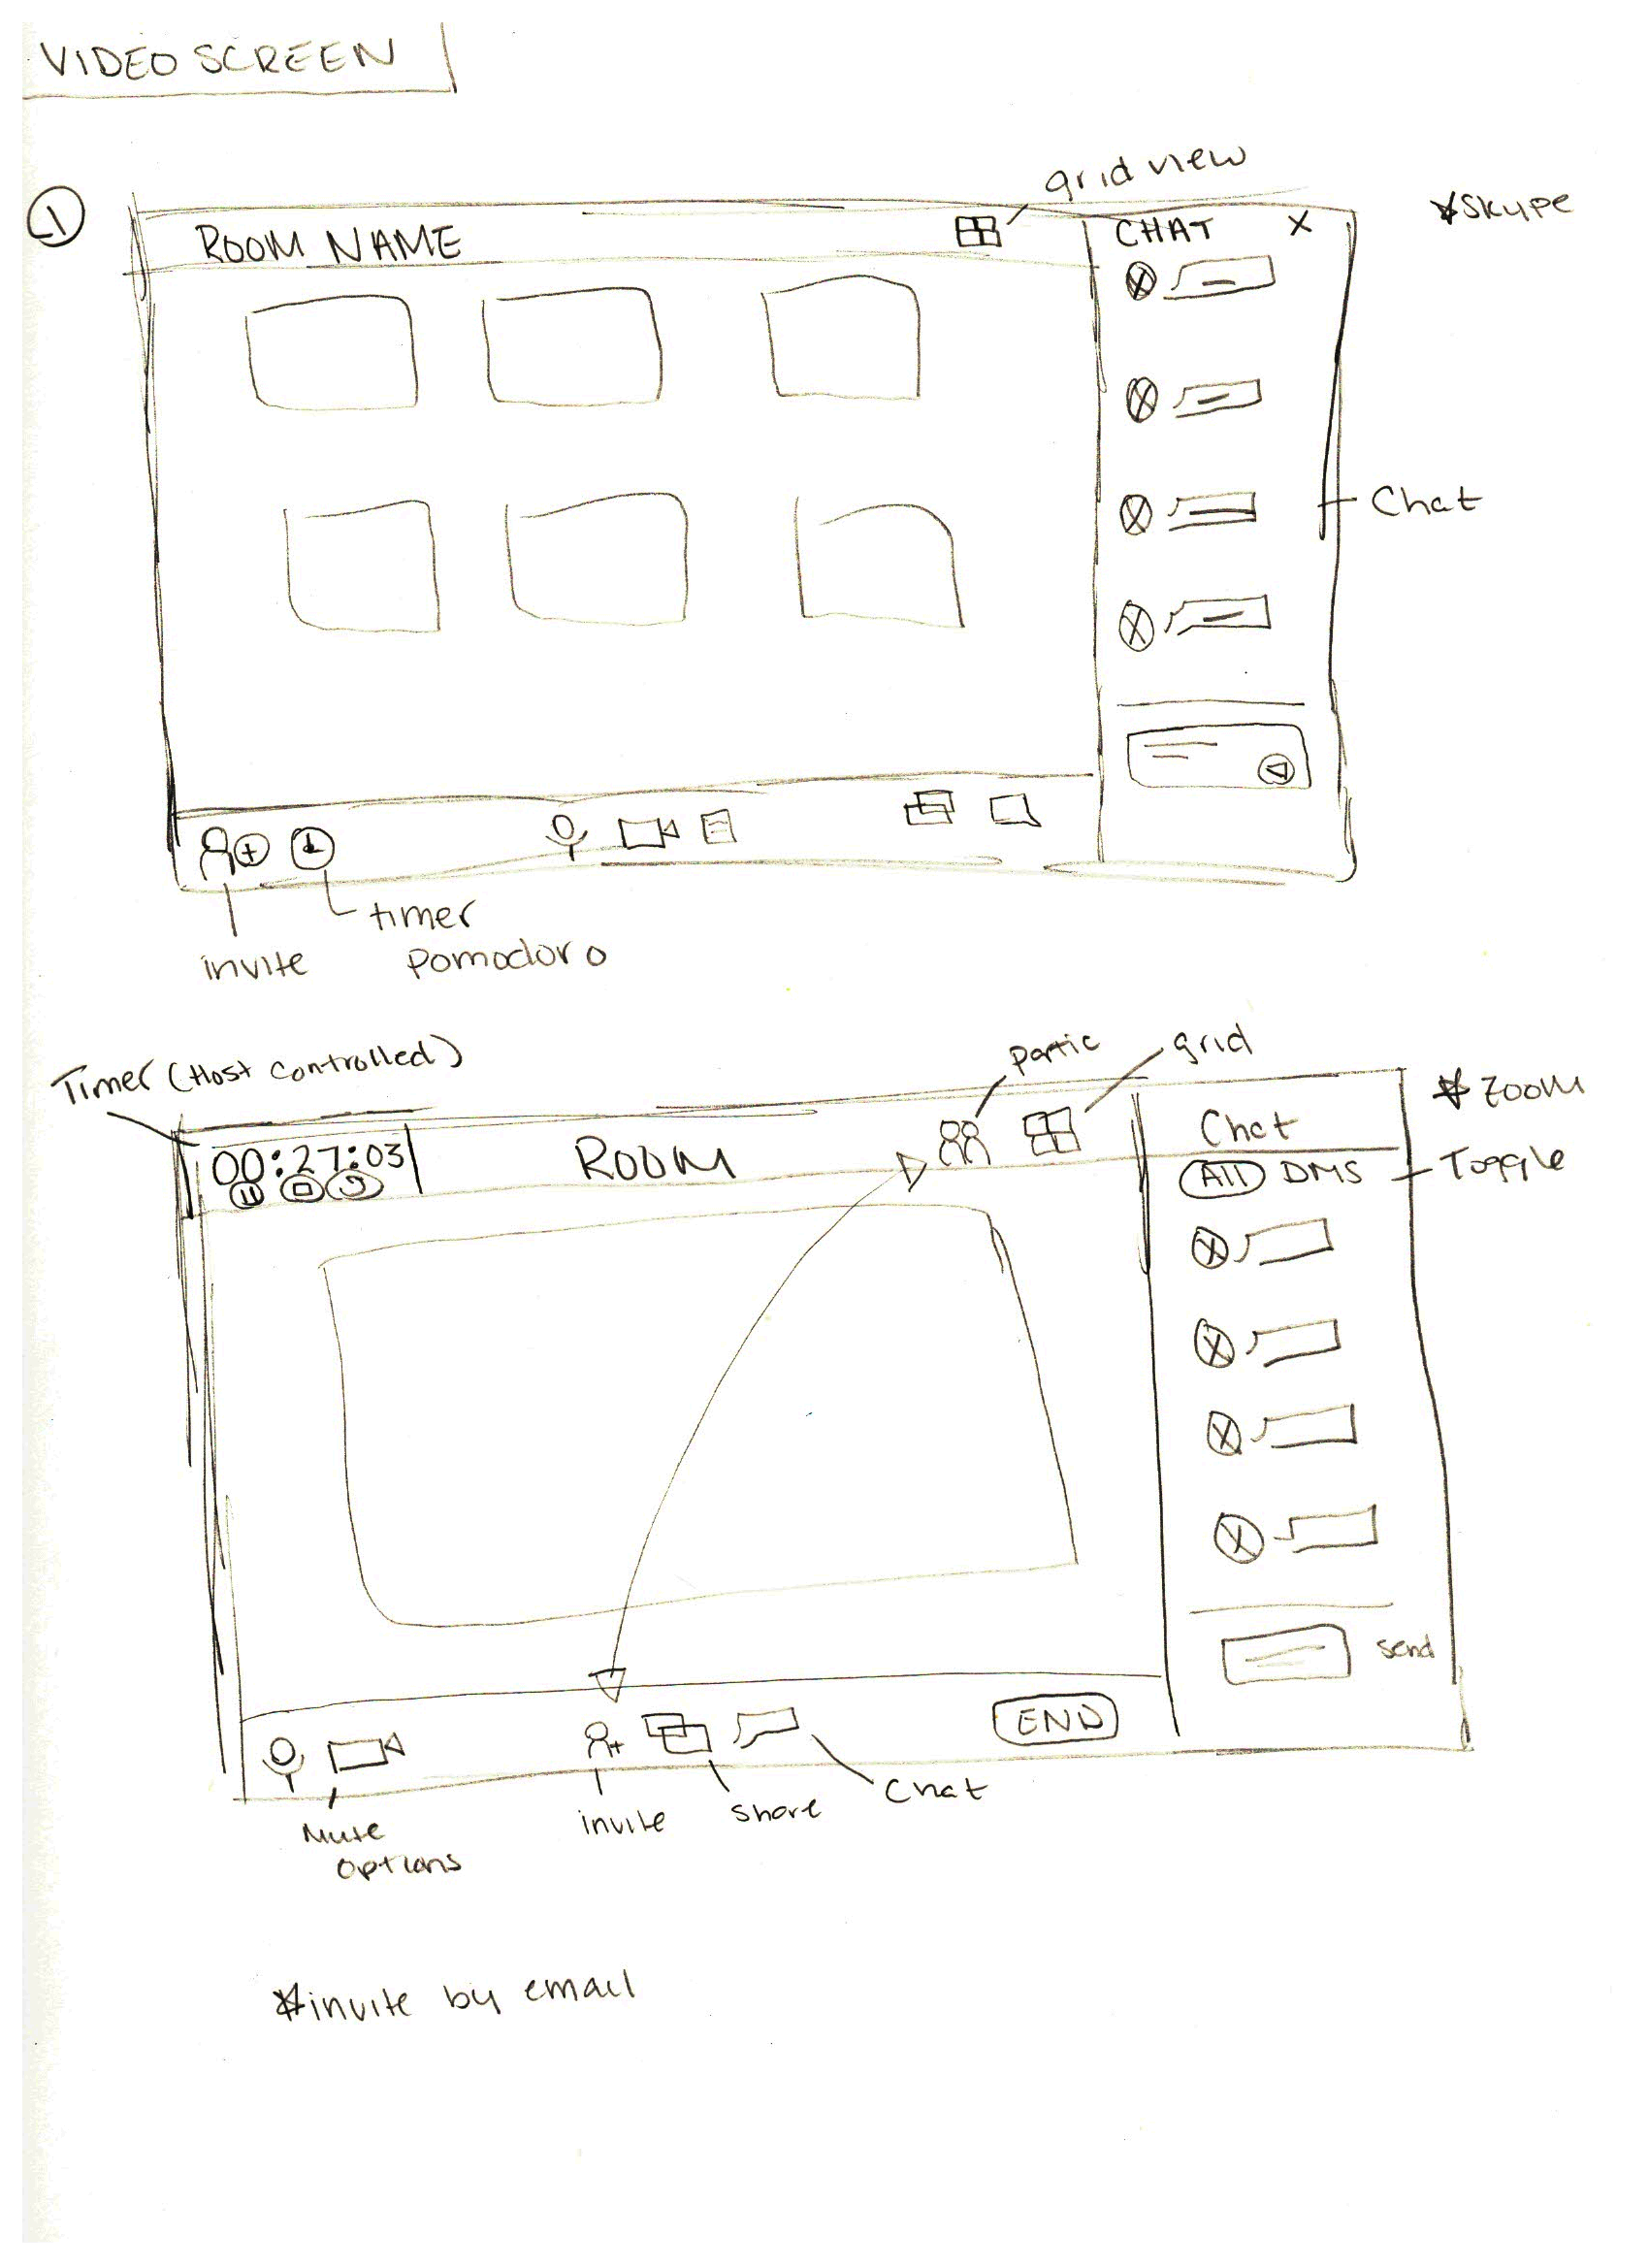 VIDEO SCREEN
1
grid view
*Skype
ROOM NAME
CHAT X
Chat
timer
pomodoro
invite
Timer (Host controlled)
partic
grid
*zoom
00:27:03
ROOM
Chat
All DMS
Toggle
send
END
Mute
options
invite
share
Chat
*invite by email